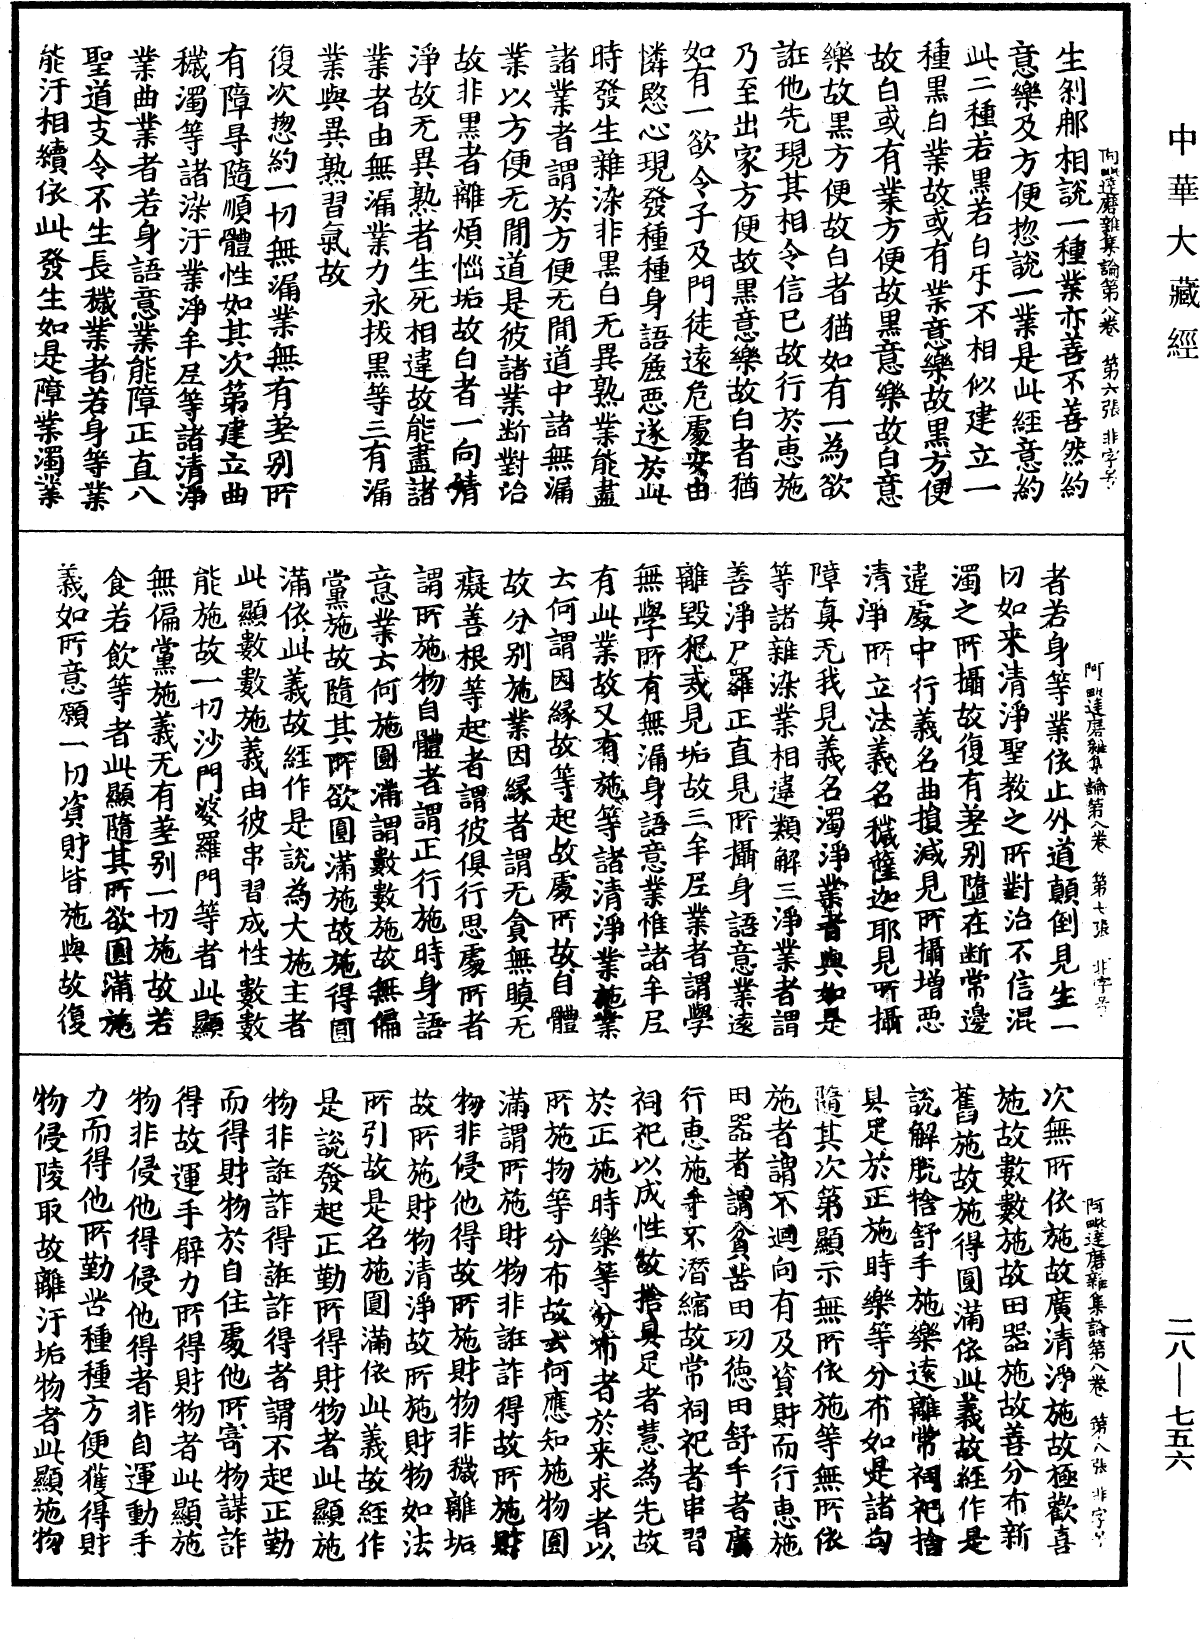 中華大藏經
二八—七五六
阿毗達磨雜集論第八卷　第六張　非字号
生刹那相說一種業亦善不善然約
意樂及方便惣說一業是此經意約
此二種若黑若白牙不相似建立一
種黑白業故或有業意樂故黑方便
故白或有業方便故黑意樂故白意
樂故黑方便故白者猶如有一為欲
誑他先現其相令信已故行於惠施
乃至出家方便故黑意樂故白者猶
如有一欲令子及門徒遠危處安由
憐愍心現發種種身語麁悪遂於此
時發生雜染非黑白无異熟業能盡
諸業者謂於方便无閒道中諸無漏
業以方便无閒道是彼諸業断對治
故非黑者離煩惱垢故白者一向清
淨故无異熟者生死相違故能盡諸
業者由無漏業力永拔黑等三有漏
業與異熟習氣故
復次惣約一切無漏業無有差別所
有障㝵隨順體性如其次第建立曲
穢濁等諸染汙業淨牟尼等諸清淨
業曲業者若身語意業能障正直八
聖道支令不生長穢業者若身等業
能汙相續依此發生如是障業濁業
阿毗達磨雜集論第八卷　第七張　非字号
者若身等業依止外道顛倒見生一
切如来清淨聖教之所對治不信混
濁之所攝故復有差別墮在断常邊
違處中行義名曲損減見所攝增悪
清淨所立法義名穢薩迦耶見所攝
障真无我見義名濁淨業者與如是
等諸雜染業相違類解三淨業者謂
善淨尸羅正直見所攝身語意業遠
離毀犯戒見垢故三牟尼業者謂學
無學所有無漏身語意業惟諸牟尼
有此業故又有施等諸清淨業施業
云何謂因緣故等起故處所故自體
故分別施業因緣者謂无貪無瞋无
癡善根等起者謂彼俱行思處所者
謂所施物自體者謂正行施時身語
意業云何施圓滿謂數數施故無偏
黨施故隨其所欲圓滿施故施得圓
滿依此義故經作是說為大施主者
此顯數數施義由彼串習成性數數
能施故一切沙門婆羅門等者此顯
無偏黨施義无有差別一切施故若
食若飲等者此顯隨其所欲圓滿施
義如所意願一切資財皆施與故復
阿毗達磨雜集論第八卷　第八張　非字号
次無所依施故廣清淨施故極歡喜
施故數數施故田器施故善分布新
舊施故施得圓滿依此義故經作是
說解脫捨舒手施樂遠離常祠祀捨
具足於正施時樂等分布如是諸句
隨其次第顯示無所依施等無所依
施者謂不迴向有及資財而行惠施
田器者謂貧苦田功德田舒手者廣
行惠施手不潛縮故常祠祀者串習
祠祀以成性故捨具足者慧為先故
於正施時樂等分布者於来求者以
所施物等分布故云何應知施物圓
滿謂所施財物非誑詐得故所施財
物非侵他得故所施財物非穢離垢
故所施財物清淨故所施財物如法
所引故是名施圓滿依此義故經作
是說發起正勤所得財物者此顯施
物非誑詐得誑詐得者謂不起正勤
而得財物於自住處他所寄物謀詐
得故運手臂力所得財物者此顯施
物非侵他得侵他得者非自運動手
力而得他所勤苦種種方便獲得財
物侵陵取故離汙垢物者此顯施物